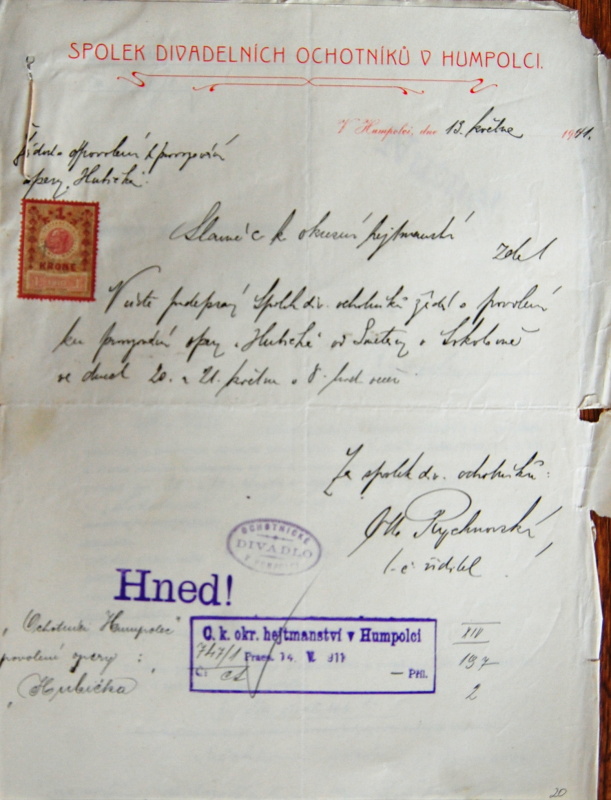 SPOLEK DIVADELNÍCH OCHOTNÍKŮ V HUMPOLCI.
V Humpolci, dne 13. května 1911.
Žádost o povolení k provozování
opery "Hubička"
1
KRONE
Slavné c. k. okresní hejtmanství
zde!
Níže podepsaný Spolek div. ochotníků žádá o povolení
ku provozování opery "Hubička" od Smetany v Sokolovně
ve dnech 20. a 21. května o 8. hod. večer.
Za spolek div. ochotníků:
Otto Rychnovský
t. č. ředitel
OCHOTNICKÉ
DIVADLO
V HUMPOLCI
Hned!
"Ochotníci Humpolec"
povolení opery :
"Hubička"
C. k. okr. hejtmanství v Humpolci
747/1 Praes. 14. V. 911
Čí — Příl.
VIII
197
2
20